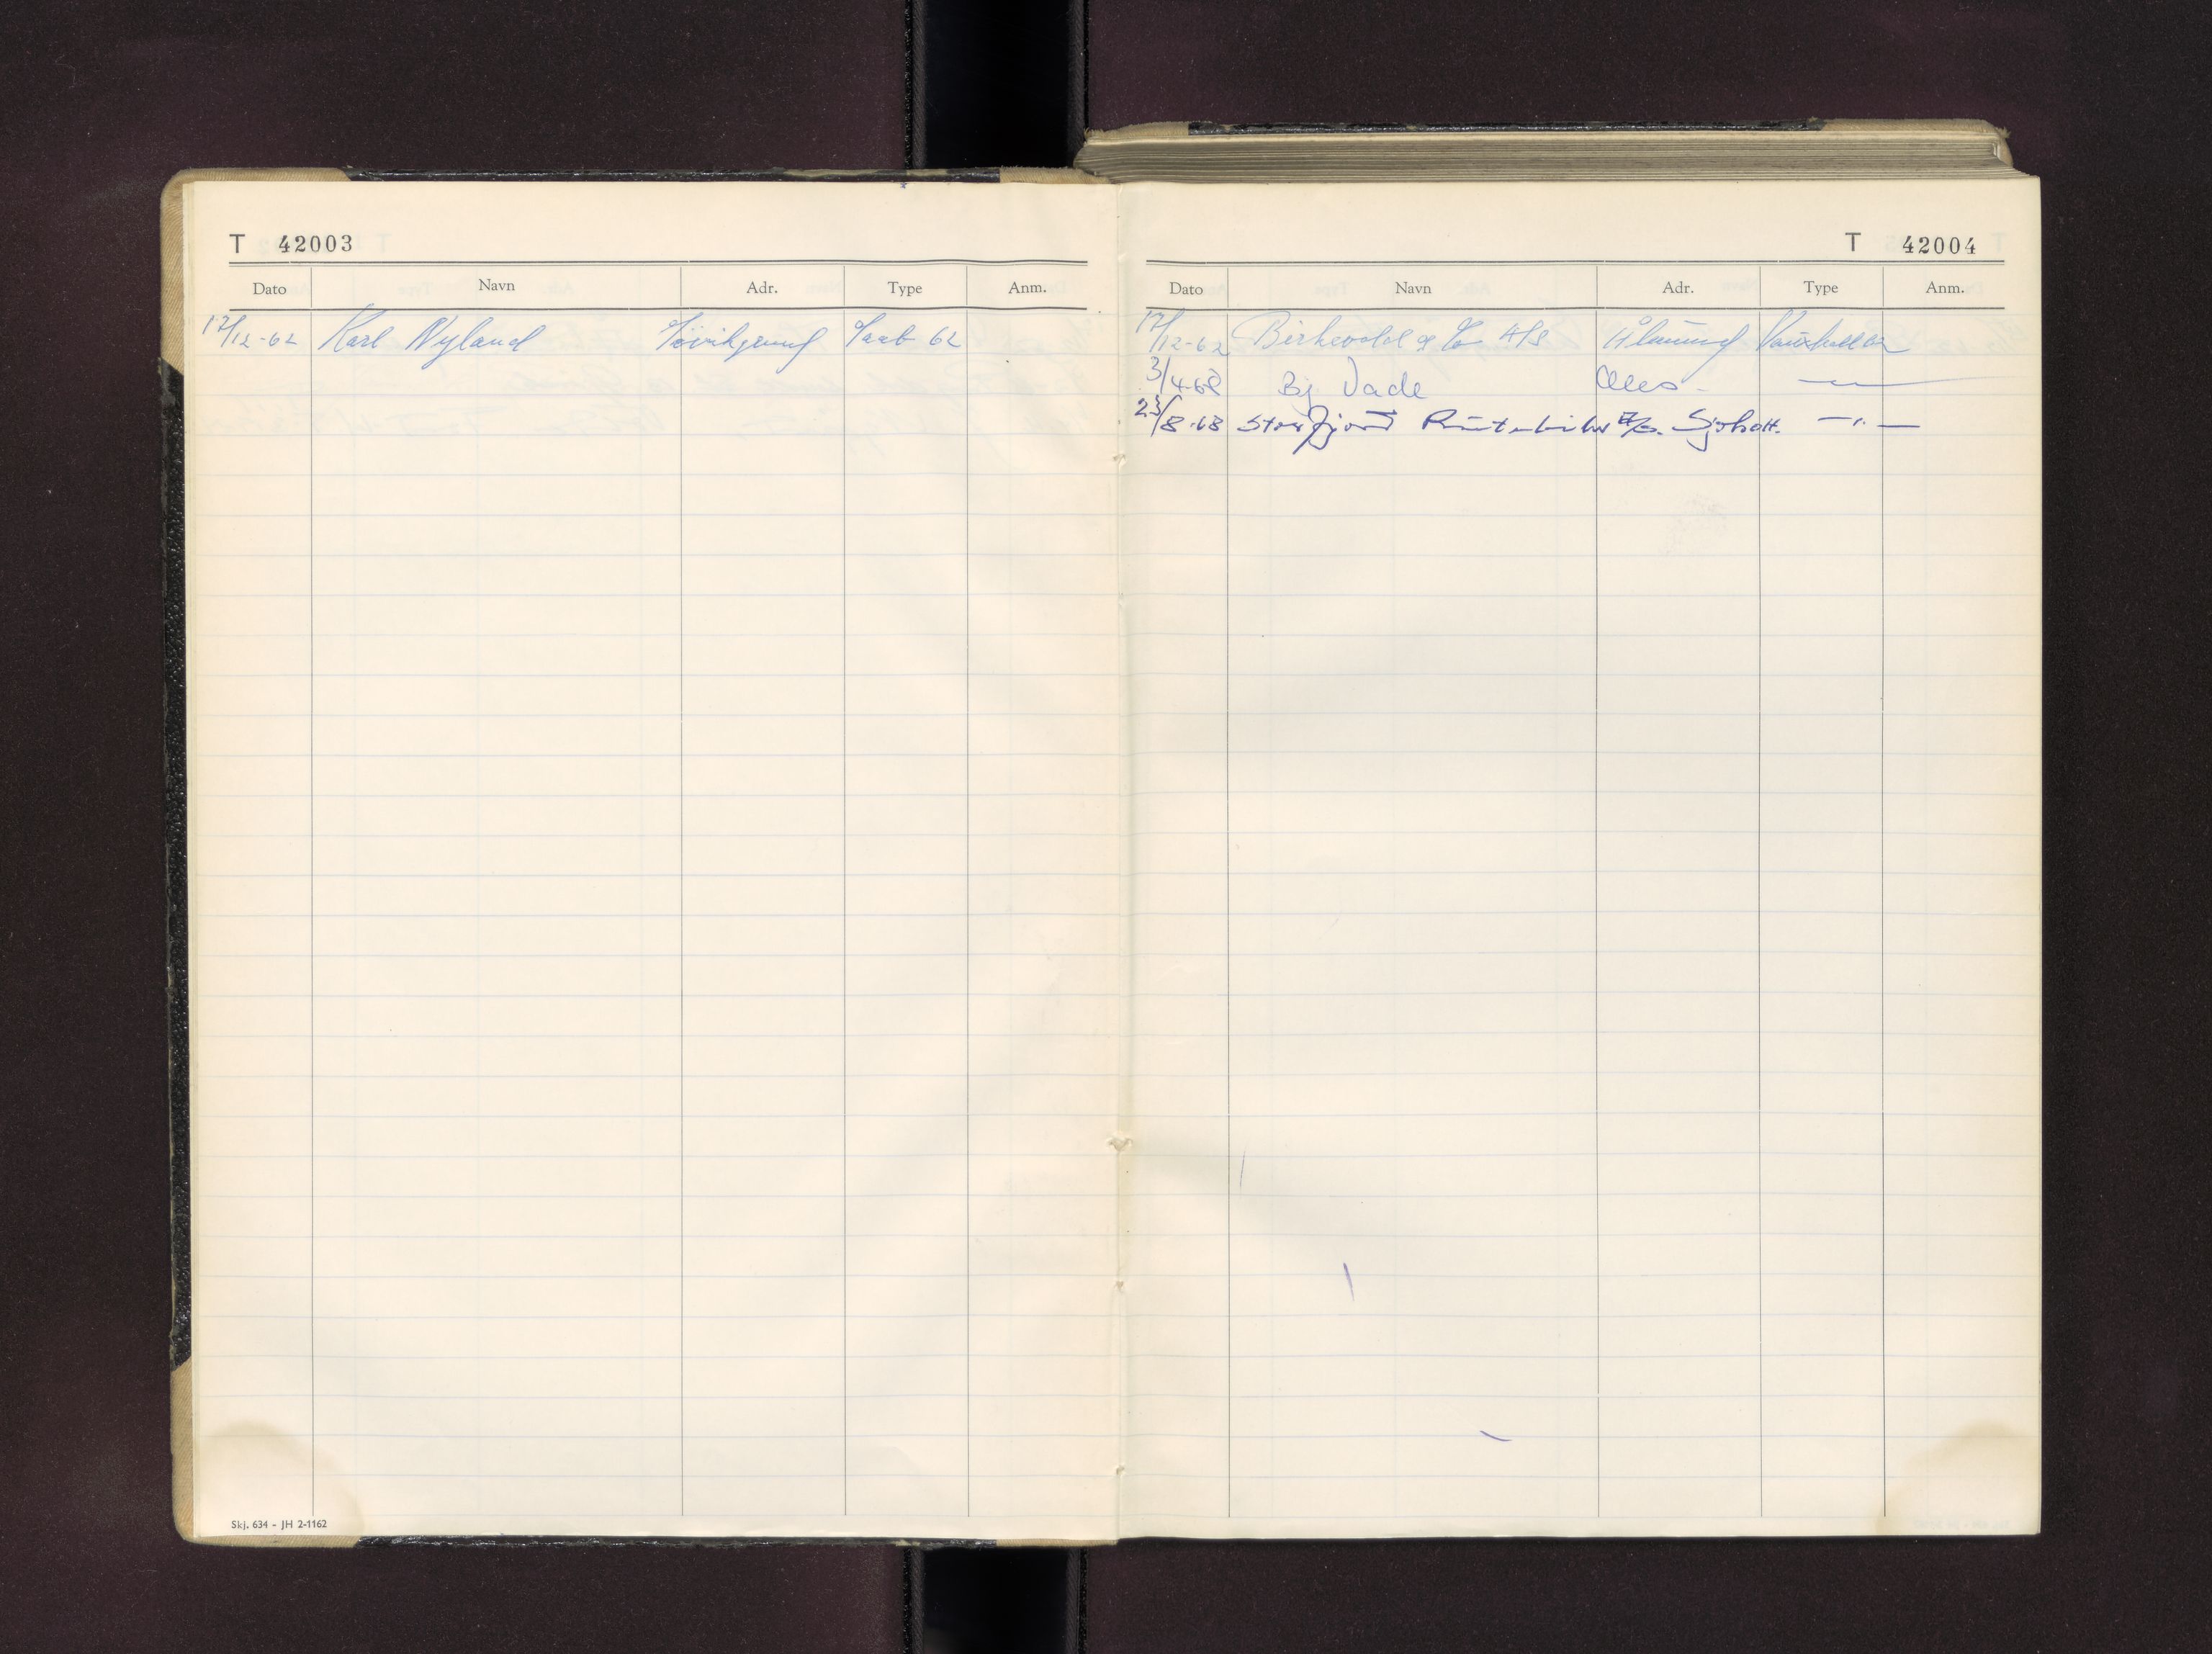 T 42003
Dato Navn Adr. Type Anm.
17/12-62 Karl Nyland Sövikgrend Saab 62
Skj. 634 - JH 2-1162
T 42004
Dato Navn Adr. Type Anm.
17/12-62 Birkevold & Co A/S Ålesund Vauxhall
3/4-68 Bj Vade Ales -
23/8-68 Storfjord Rutebiler A/S. Sjøholt. —"—